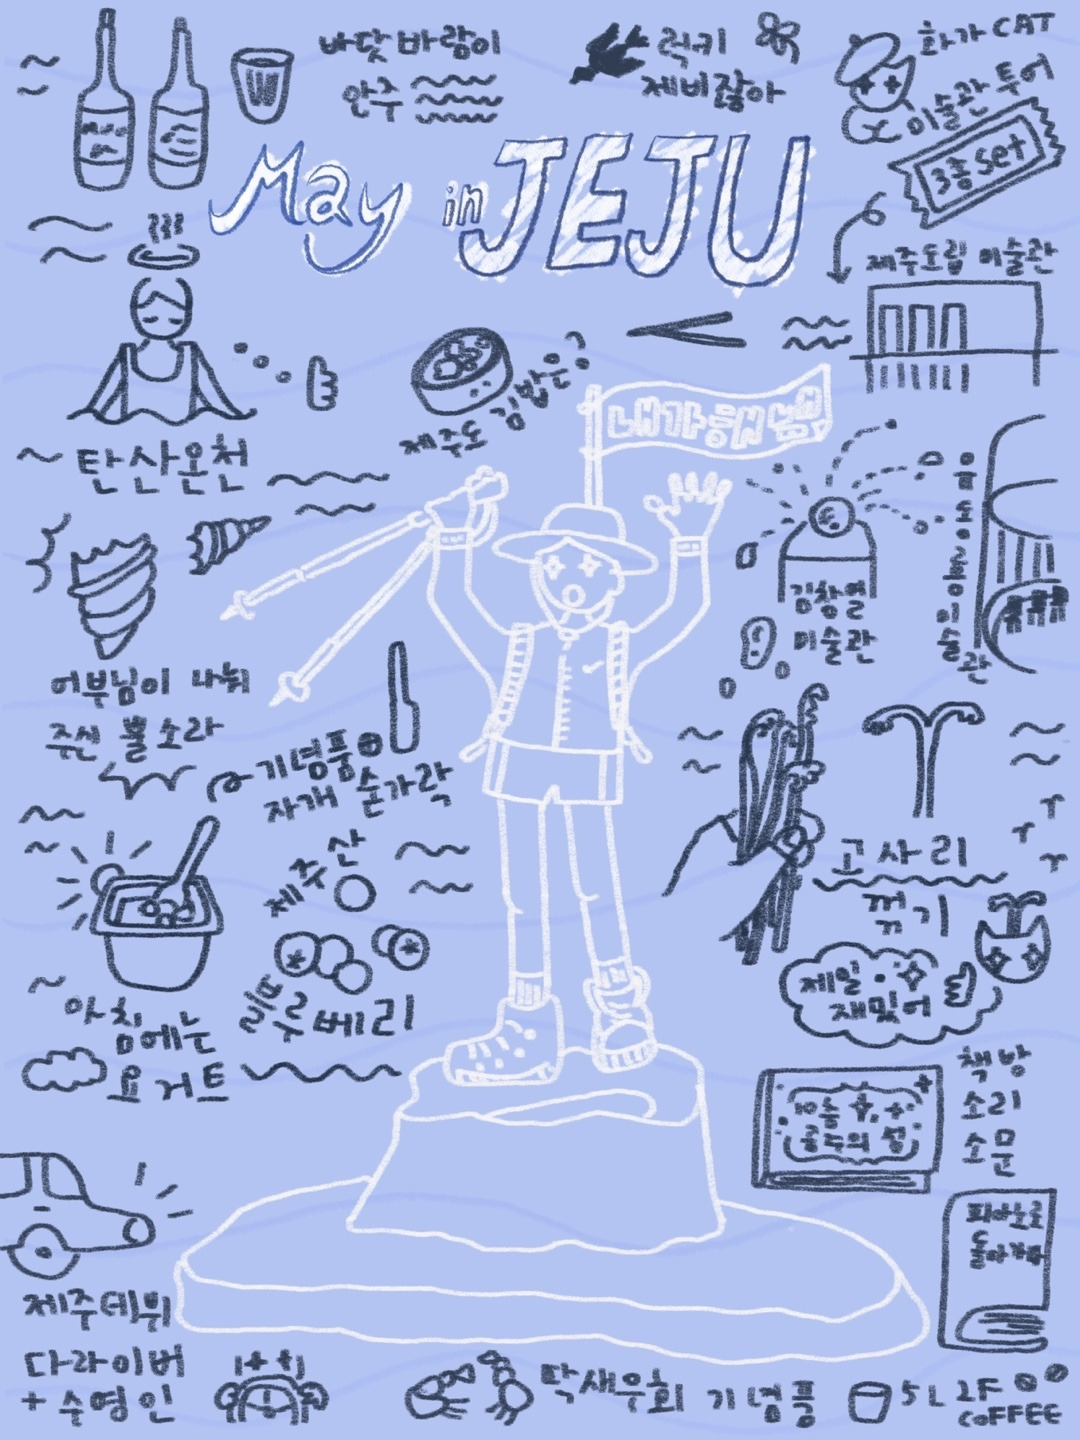 바닷바람이
안주
럭키
제비잖아
화가 CAT
미술관 투어
3종 set
May in JEJU
제주도립 미술관
제주도 김밥은?
내가해냄
탄산온천
김창열
미술관
유동룡미술관
어부님이 나눠
주신 뿔소라
기념품
자개 숟가락
제주산
블루베리
고사리
꺾기
제일
재밌어
아침에는
요거트
책방
소리
소문
제주데뷔
다라이버
+ 수영인
딱새우회 기념품
5L 2F
COFFEE